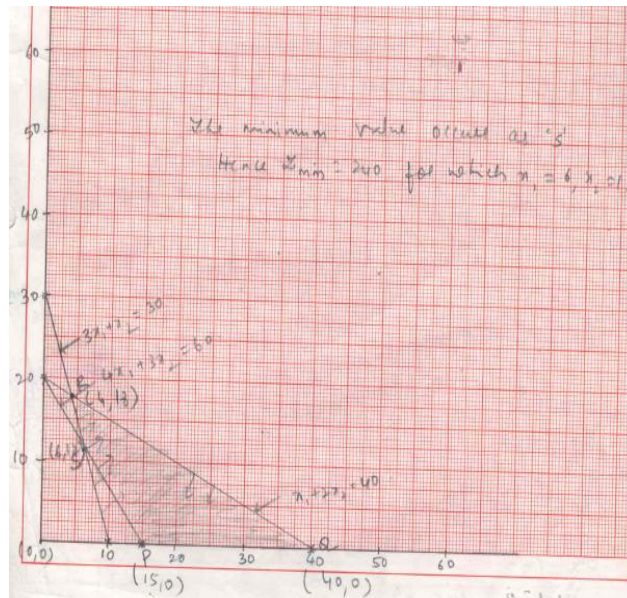 60
50
The minimum value occurs as 'S'
Hence Zmin = 240 for which x₁ = 6, x₂ = 1
40
30
3x₁+x₂=30
20
4x₁+3x₂=60
R
(4,18)
10
S
x₁+2x₂=40
(0,0)
10
P
20
30
Q
50
60
(15,0)
(40,0)